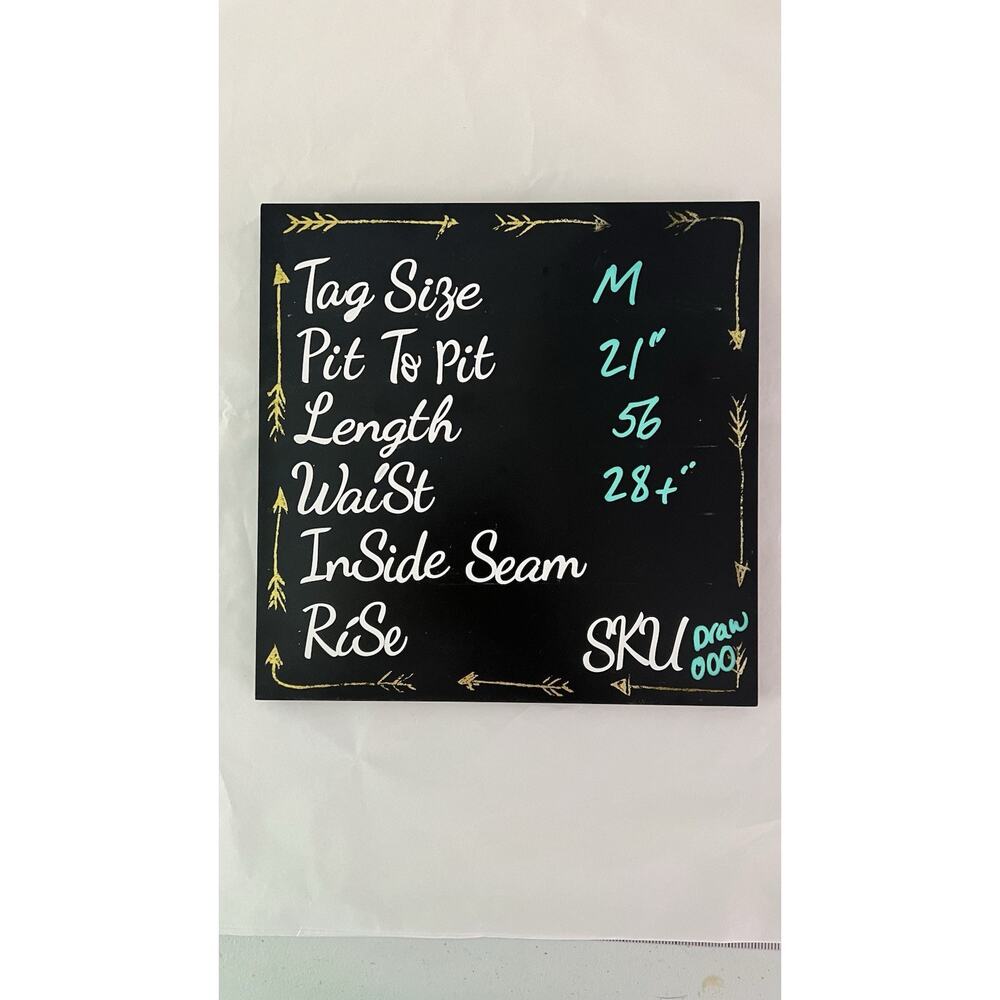 Tag Size M
Pit To Pit 21"
Length 56
Waist 28+"
InSide Seam
RiSe
SKU Draw
000